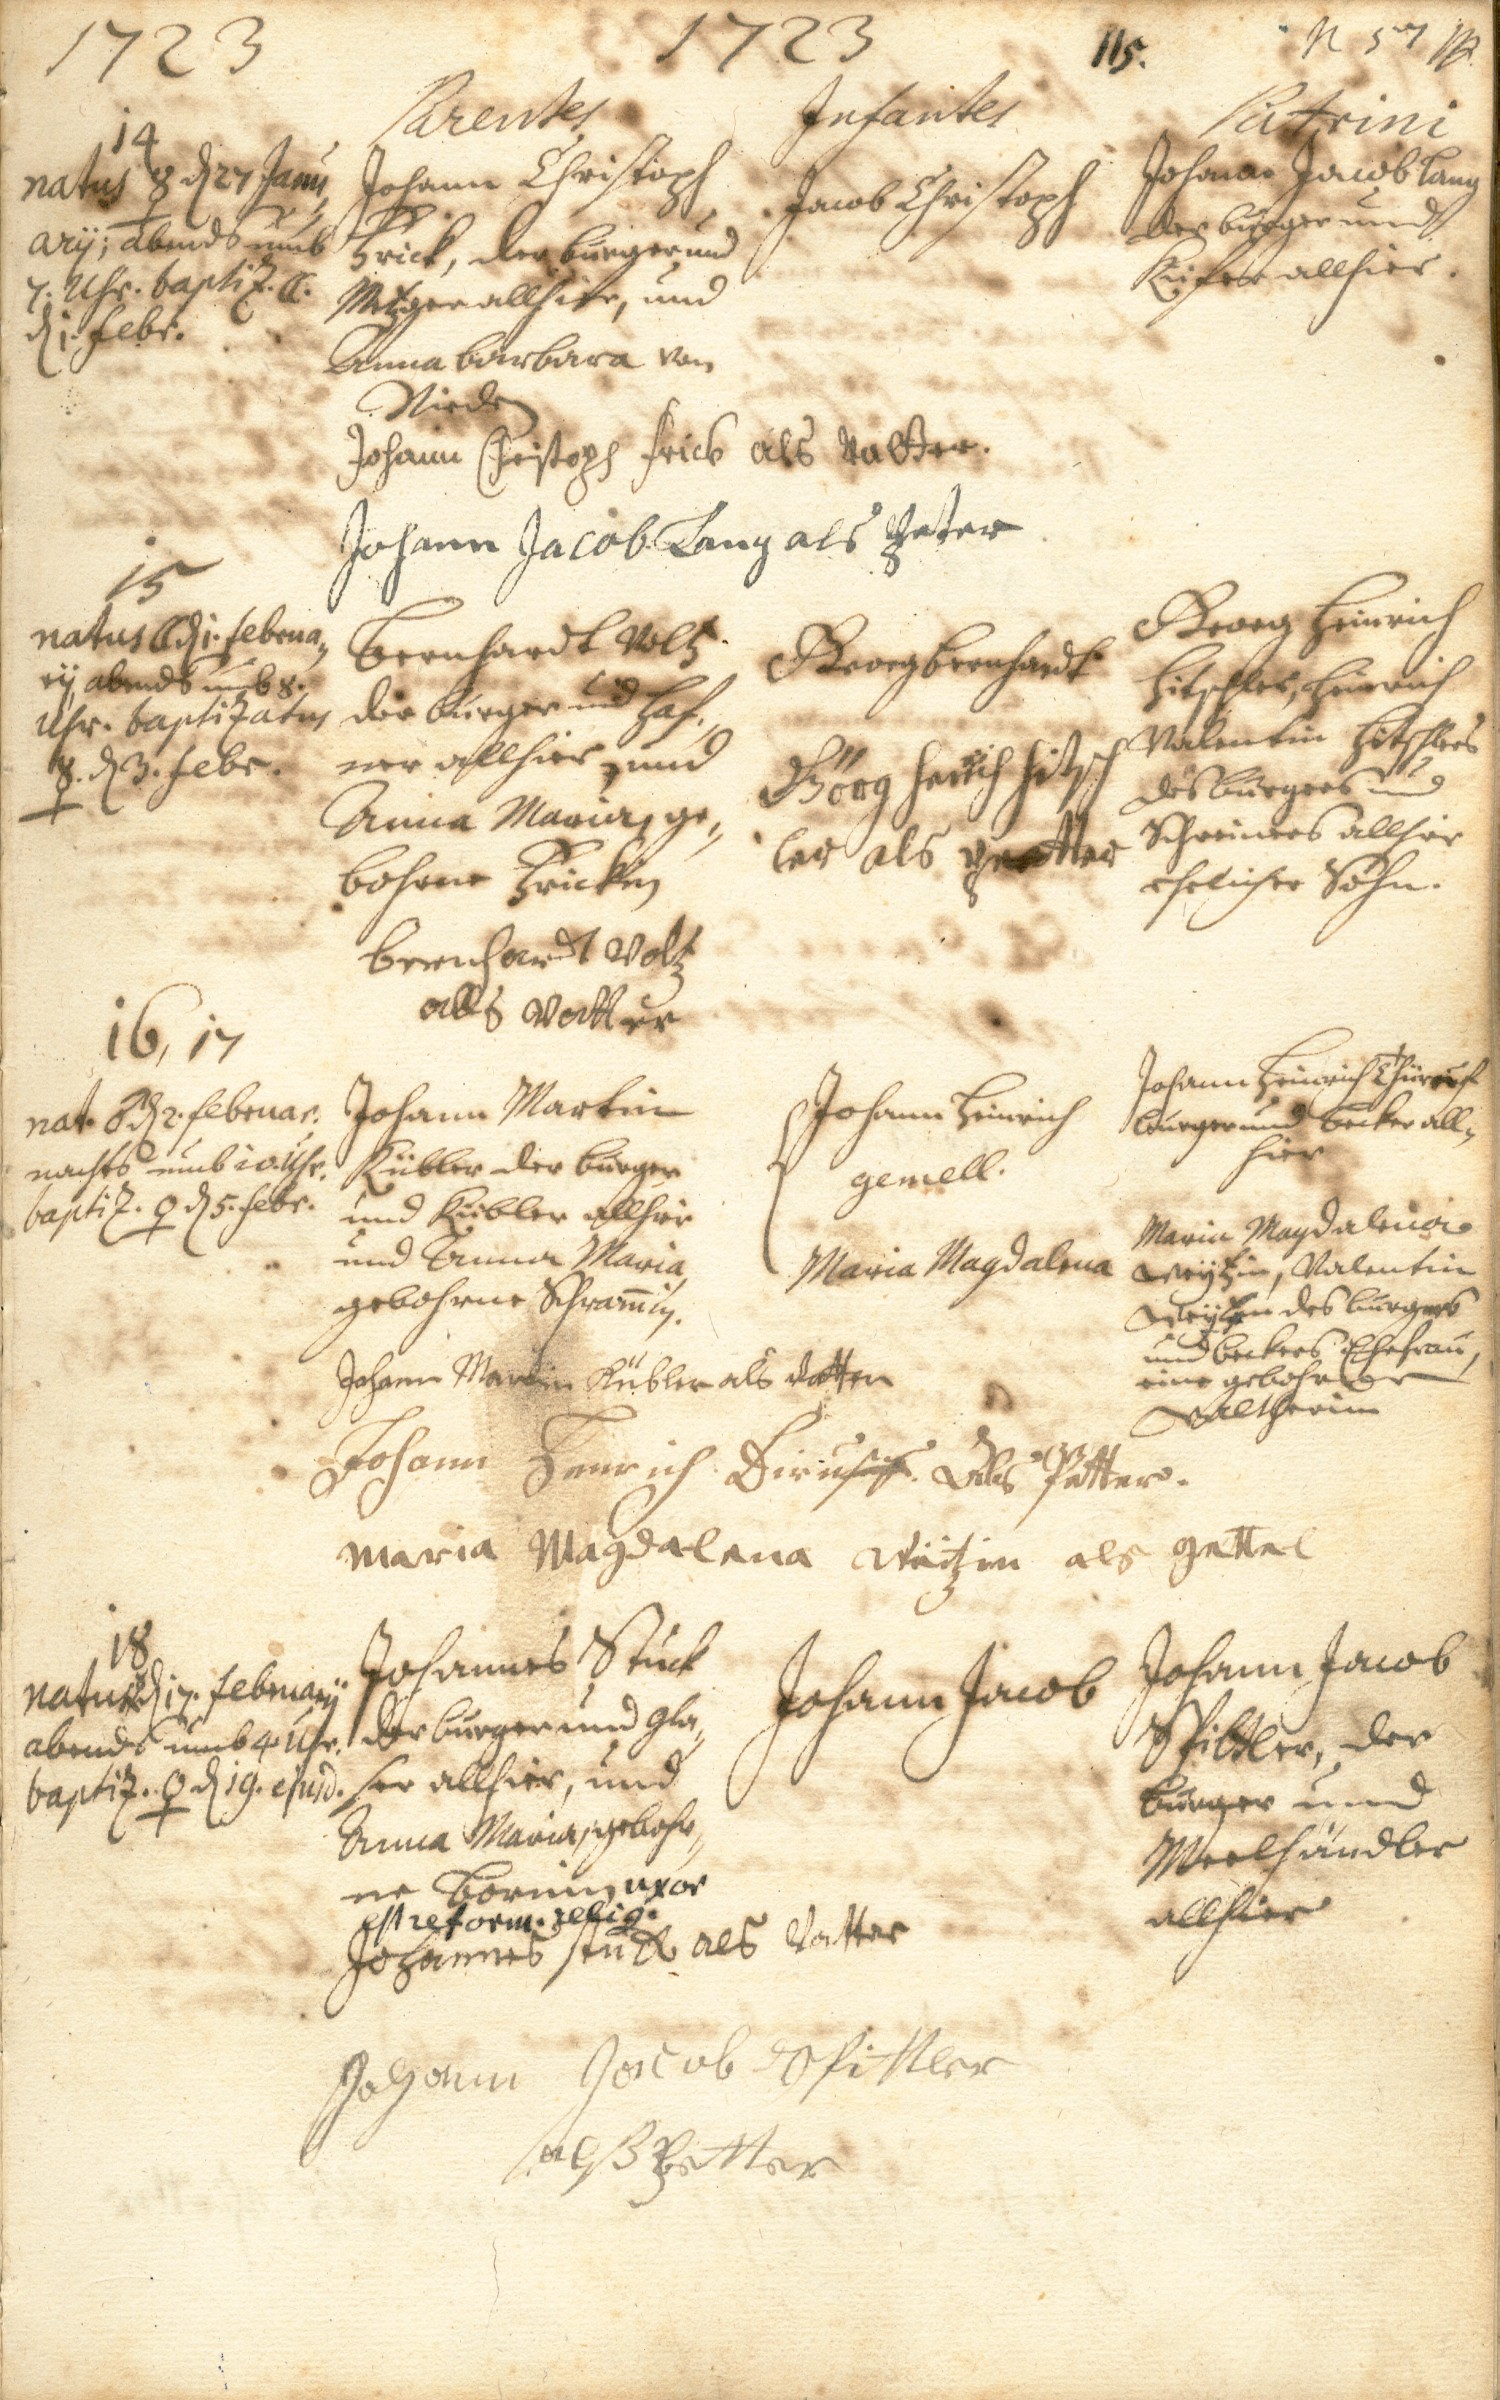 1723 1723 115.
Parentes Infantes Patrini
14
natus ☿ d 27 Janu,,
ary; abends umb
7. Uhr. baptiz. ☾.
d 1. Febr.
Johann Christoph
Frick, der burger und
Metzger allhier, und
Anna barbara von
Nieden
Jacob Christoph
Johann Jacob Lang
der burger und
Kiefer allhier.
Johann Christoph frick als Vatter.
Johann Jacob Lang als Peter
15
natus ☾ d 1. Februa,,
ry abends umb 8.
Uhr. baptizatus
☿. d 3. Febr.
Bernhardt Voltz
der burger und Haf,,
ner allhier, und
Anna Maria, ge,,
bohrne Frickin
Georg bernhardt
Görg henrich hitsch
ler als petter
Georg Heinrich
Hitschler, Heinrich
Valentin Hitschlers
des burgers und
Schreiners allhier
ehelicher Sohn.
bernhardt Voltz
als Vatter
16, 17
nat. ♂ d 2. Februar.
nachts umb 10. Uhr.
baptiz. ♀ d 5. Febr.
Johann Martin
Kübler der burger
und Kübler allhier
und Anna Maria
gebohrne Schram̅in.
Johann Heinrich
gemell.
Maria Magdalena
Johann Heinrich
burger und becker all,,
hier
Maria Magdalena
Weytzin, Valentin
Weytzen des burgers
und beckers Ehefrau,
eine gebohrne
Waltherin
Johann Martin Kübler als Vatter
Johann Henrich als Petter.
Maria Magdalena Weitzin als gettel
18
natus d 17. February
abends umb 4. Uhr.
baptiz. ♀ d 19. ejusd.
Johannes Stuck
der burger und gla,,
ser allhier, und
Anna Maria, gebohr,,
ne uxor
est reform. relig.
Johann Jacob
Johann Jacob
Spittler, der
burger und
Meelhändler
allhier
Johannes stuck als Vatter
Johann Jacob Spittler
alß Petter